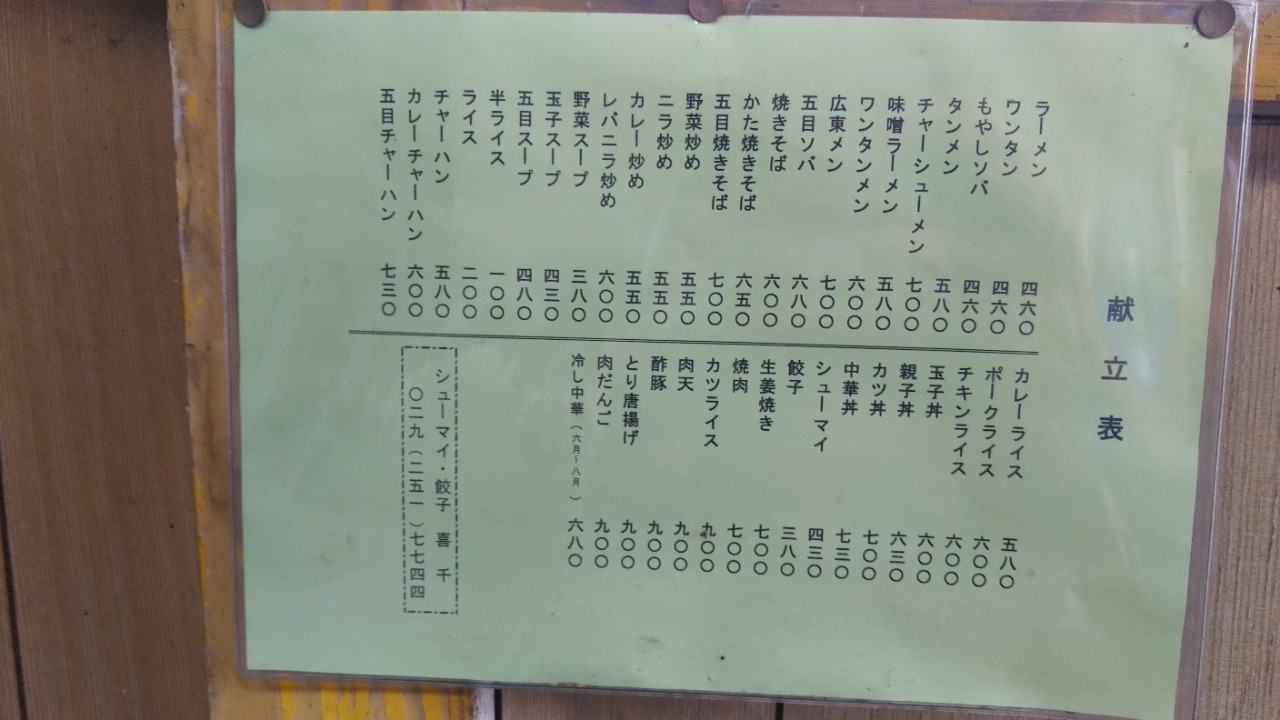 献立表
ラーメン 四六〇
ワンタン 四六〇
もやしソバ 四六〇
タンメン 五八〇
チャーシューメン 七〇〇
味噌ラーメン 五八〇
ワンタンメン 六〇〇
広東メン 七〇〇
五目ソバ 六八〇
焼きそば 六〇〇
かた焼きそば 六五〇
五目焼きそば 七〇〇
野菜炒め 五五〇
ニラ炒め 五五〇
カレー炒め 五五〇
レバニラ炒め 六〇〇
野菜スープ 三八〇
玉子スープ 四三〇
五目スープ 四八〇
半ライス 一〇〇
ライス 二〇〇
チャーハン 五八〇
カレーチャーハン 六〇〇
五目チャーハン 七三〇
カレーライス 五八〇
ポークライス 六〇〇
チキンライス 六〇〇
玉子丼 六〇〇
親子丼 六三〇
カツ丼 七〇〇
中華丼 七三〇
シューマイ 四三〇
餃子 三八〇
生姜焼き 七〇〇
焼肉 七〇〇
カツライス 九〇〇
肉天 九〇〇
酢豚 九〇〇
とり唐揚げ 九〇〇
肉だんご 九〇〇
冷し中華（六月〜八月） 六八〇
シューマイ・餃子 喜千
〇二九（二五一）七七四四